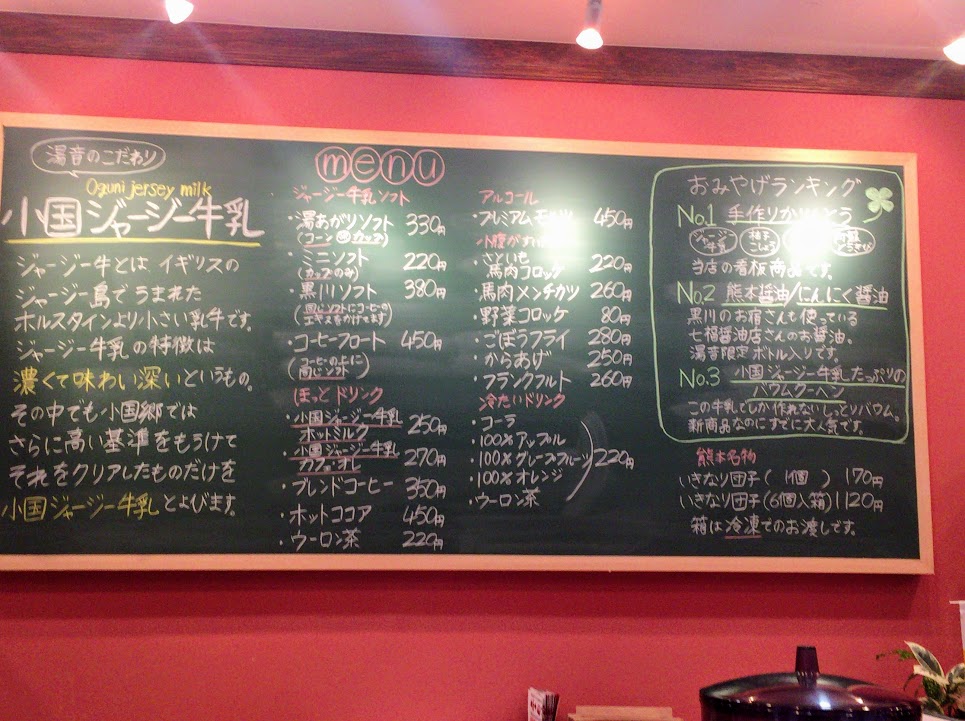 湯音のこだわり
Oguni jersey milk
小国ジャージー牛乳
ジャージー牛とは イギリスの
ジャージー島で うまれた
ホルスタインより小さい乳牛です。
ジャージー牛乳の特徴は
濃くて味わい深いというもの。
その中でも小国郷では
さらに高い基準をもうけて
それをクリアしたものだけを
小国ジャージー牛乳とよびます。
menu
ジャージー牛乳ソフト
・湯あがりソフト 330円
(コーン カップ)
・ミニソフト 220円
(カップのみ)
・黒川ソフト 380円
・コーヒーフロート 450円
(コーヒーの上に)
ほっとドリンク
・小国ジャージー牛乳
ホットミルク 250円
・小国ジャージー牛乳
カフェ・オレ 270円
・ブレンドコーヒー 350円
・ホットココア 450円
・ウーロン茶 220円
アルコール
・プレミアムモルツ 450円
小腹が
・さといも
馬肉コロッケ 220円
・馬肉メンチカツ 260円
・野菜コロッケ 80円
・ごぼうフライ 280円
・からあげ 250円
・フランクフルト 260円
冷たいドリンク
・コーラ
・100%アップル
・100%グレープフルーツ 220円
・100%オレンジ
・ウーロン茶
おみやげランキング
No.1 手作りかりんとう
ジャージー牛乳 柚子こしょう
当店の看板商品です。
No.2 熊本醤油/にんにく醤油
黒川のお宿さんも使っている
七福醤油店さんのお醤油。
湯音限定ボトル入りです。
No.3 小国ジャージー牛乳たっぷりの
バウムクーヘン
この牛乳でしか作れないしっとりバウム。
新商品なのにすでに大人気です。
熊本名物
いきなり団子(1個) 170円
いきなり団子(6個入箱) 1120円
箱は冷凍でのお渡しです。